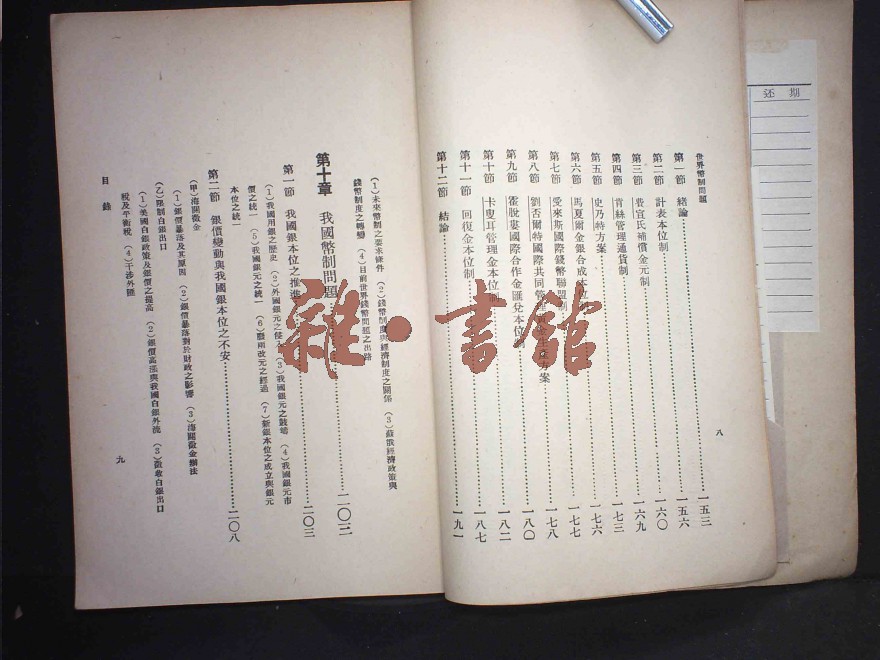 还期
世界幣制問題
八
第一節 緒論 一五三
第二節 計表本位制 一五六
第三節 費宜氏補償金元制 一六〇
第四節 肯絲管理通貨制 一六九
第五節 史乃特方案 一七三
第六節 馬夏爾金銀合成本位 一七六
第七節 愛來斯國際錢幣聯盟制 一七七
第八節 劉否爾特國際共同管 方案 一七八
第九節 霍脫婁國際合作金匯兌本位 一八〇
第十節 卡叟耳管理金本位制 一八二
第十一節 回復金本位制 一八七
第十二節 結論 一九一
(1)未來幣制之要求條件 (2)錢幣制度與經濟制度之關係 (3)蘇俄經濟政策與
錢幣制度之轉變 (4)目前世界錢幣問題之出路
第十章 我國幣制問題 二〇三
第一節 我國銀本位之推進 二〇三
(1)我國用銀之歷史 (2)外國銀元之侵入 (3)我國銀元之鼓鑄 (4)我國銀元市
價之統一 (5)我國銀元之統一 (6)廢兩改元之經過 (7)新銀本位之成立與銀元
本位之統一
第二節 銀價變動與我國銀本位之不安 二〇八
(甲)海關徵金
(1)銀價暴落及其原因 (2)銀價暴落對於財政之影響 (3)海關徵金辦法
(乙)限制白銀出口
(1)美國白銀政策及銀價之提高 (2)銀價高漲與我國白銀外流 (3)徵收白銀出口
稅及平衡稅 (4)干涉外匯
目錄
九
雜·書館